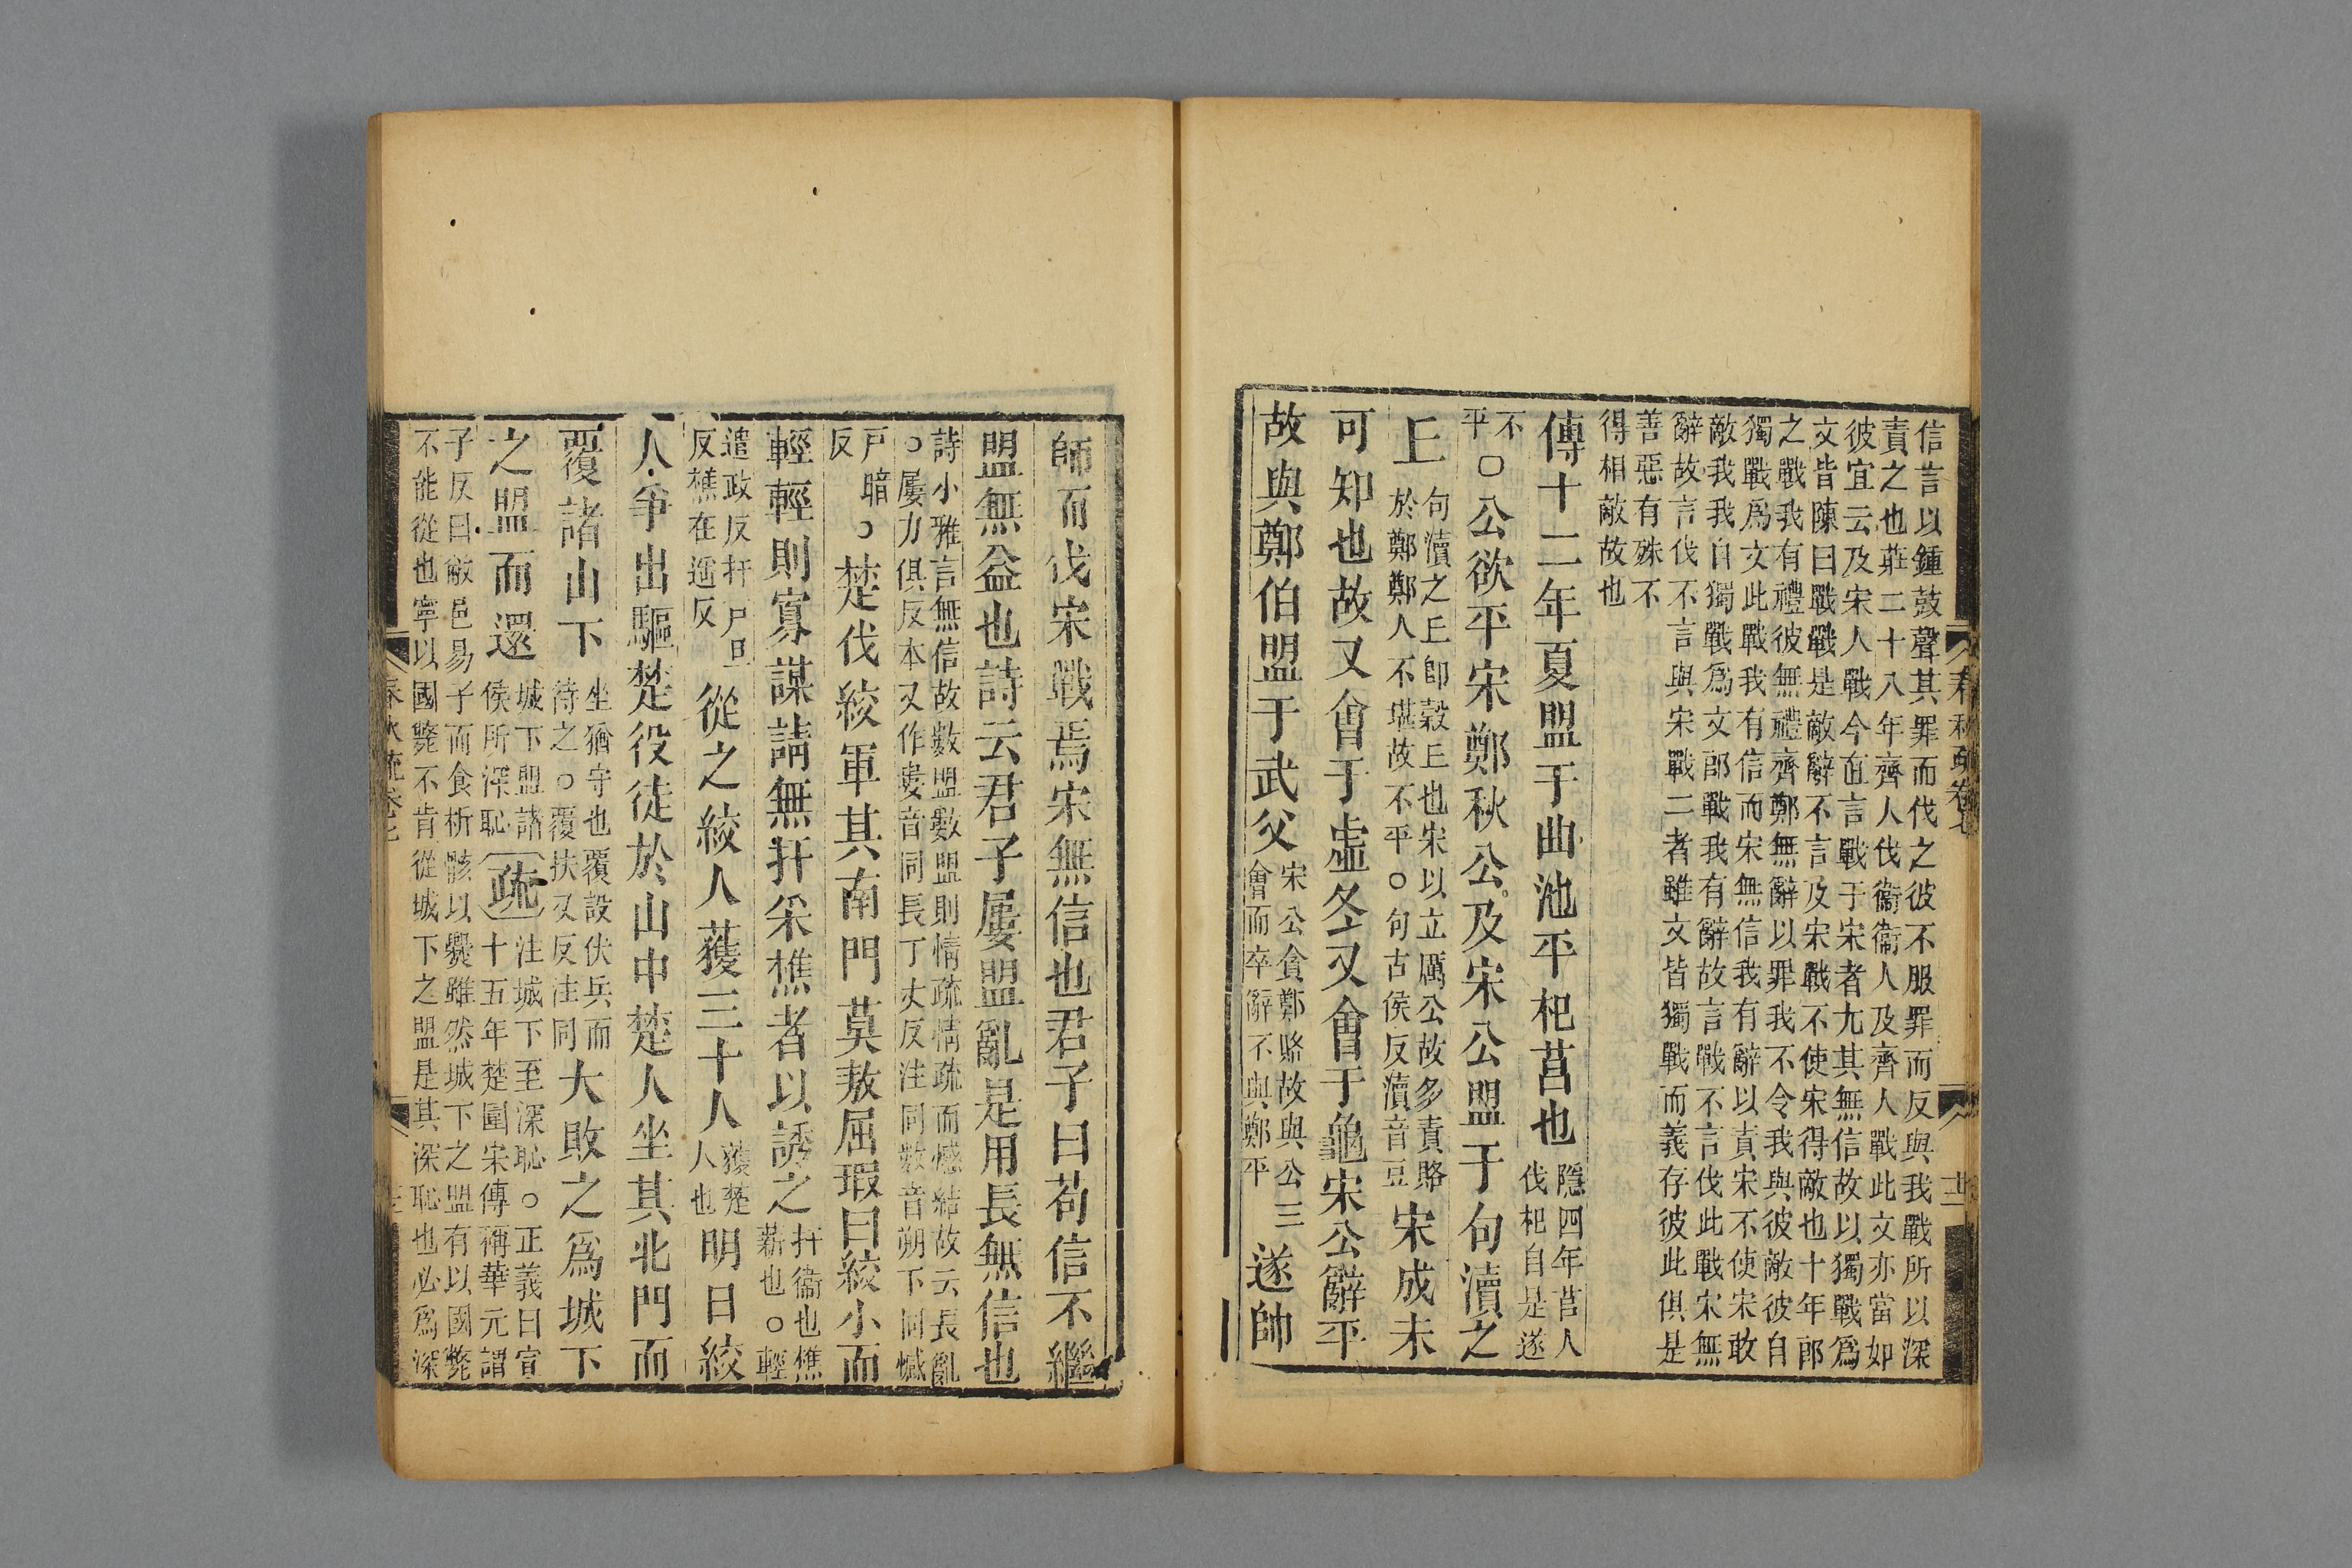 信言以鍾鼓聲其罪而伐之彼不服罪而反與我戰所以深
責之也莊二十八年齊人伐衞衞人及齊人戰此文亦當如
彼宜云及宋人戰今直言戰于宋者尤其無信故以獨戰爲
文皆陳曰戰戰是敵辭不言及宋戰不使宋得敵也十年郎
之戰我有禮彼無禮齊鄭無辭以罪我不令我與彼敵彼自
獨戰爲文此戰我有信而宋無信我有辭以責宋不使宋敢
敵我我自獨戰爲文郎戰我有辭故言戰不言伐此戰宋無
辭故言伐不言與宋戰二者雖文皆獨戰而義存彼此俱是
善惡有殊不
得相敵故也
傳十二年夏盟于曲池平杞莒也隱四年莒人
伐杞自是遂
不
平○公欲平宋鄭秋公及宋公盟于句瀆之
丘句瀆之丘卽穀丘也宋以立厲公故多責賂
於鄭鄭人不堪故不平○句古侯反瀆音豆宋成未
可知也故又會于虛冬又會于龜宋公辭平
故與鄭伯盟于武父宋公貪鄭賂故與公三
會而卒辭不與鄭平遂帥
春秋疏卷七
師而伐宋戰焉宋無信也君子曰苟信不繼
盟無益也詩云君子屢盟亂是用長無信也
詩小雅言無信故數盟數盟則情疏情疏而憾結故云長亂
○屢力俱反本又作婁音同長丁丈反注同數音朔下同憾
戸暗
反○楚伐絞軍其南門莫敖屈瑕曰絞小而
輕輕則寡謀請無扞采樵者以誘之扞衞也樵
薪也○輕
遣政反扞戸旦
反樵在遥反從之絞人獲三十人獲楚
人也明日絞
人爭出驅楚役徒於山中楚人坐其北門而
覆諸山下坐猶守也覆設伏兵而
待之○覆扶又反注同大敗之爲城下
之盟而還城下盟諸
侯所深恥疏注城下至深恥○正義曰宣
十五年楚圍宋傳稱華元謂
子反曰敝邑易子而食析骸以爨雖然城下之盟有以國斃
不能從也寧以國斃不肯從城下之盟是其深恥也必爲深
春秋疏卷七